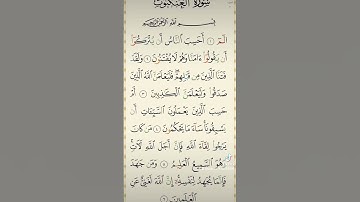 سُورَةُ العَنكَبُوتِ
بِسْمِ اللَّهِ الرَّحْمَٰنِ الرَّحِيمِ
الٓمٓ ١ أَحَسِبَ النَّاسُ أَن يُتْرَكُوٓا۟
أَن يَقُولُوٓا۟ ءَامَنَّا وَهُمْ لَا يُفْتَنُونَ ٢ وَلَقَدْ
فَتَنَّا الَّذِينَ مِن قَبْلِهِمْ فَلَيَعْلَمَنَّ اللَّهُ الَّذِينَ
صَدَقُوا۟ وَلَيَعْلَمَنَّ الْكَٰذِبِينَ ٣ أَمْ
حَسِبَ الَّذِينَ يَعْمَلُونَ السَّيِّـَٔاتِ أَن
يَسْبِقُونَا سَآءَ مَا يَحْكُمُونَ ٤ مَن كَانَ
يَرْجُوا۟ لِقَآءَ اللَّهِ فَإِنَّ أَجَلَ اللَّهِ لَـَٔاتٍ
وَهُوَ السَّمِيعُ الْعَلِيمُ ٥ وَمَن جَٰهَدَ
فَإِنَّمَا يُجَٰهِدُ لِنَفْسِهِۦٓ إِنَّ اللَّهَ لَغَنِىٌّ عَنِ
الْعَٰلَمِينَ ٦